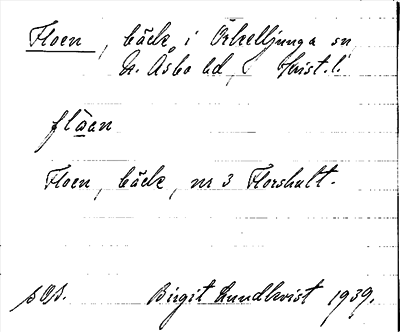 Floen, bäck i Örkelljunga sn
N. Åsbo hd, Krist. l.
flåan
Floen, bäck, nr 3 Florshult.
sOs. Birgit Lundkvist 1939.